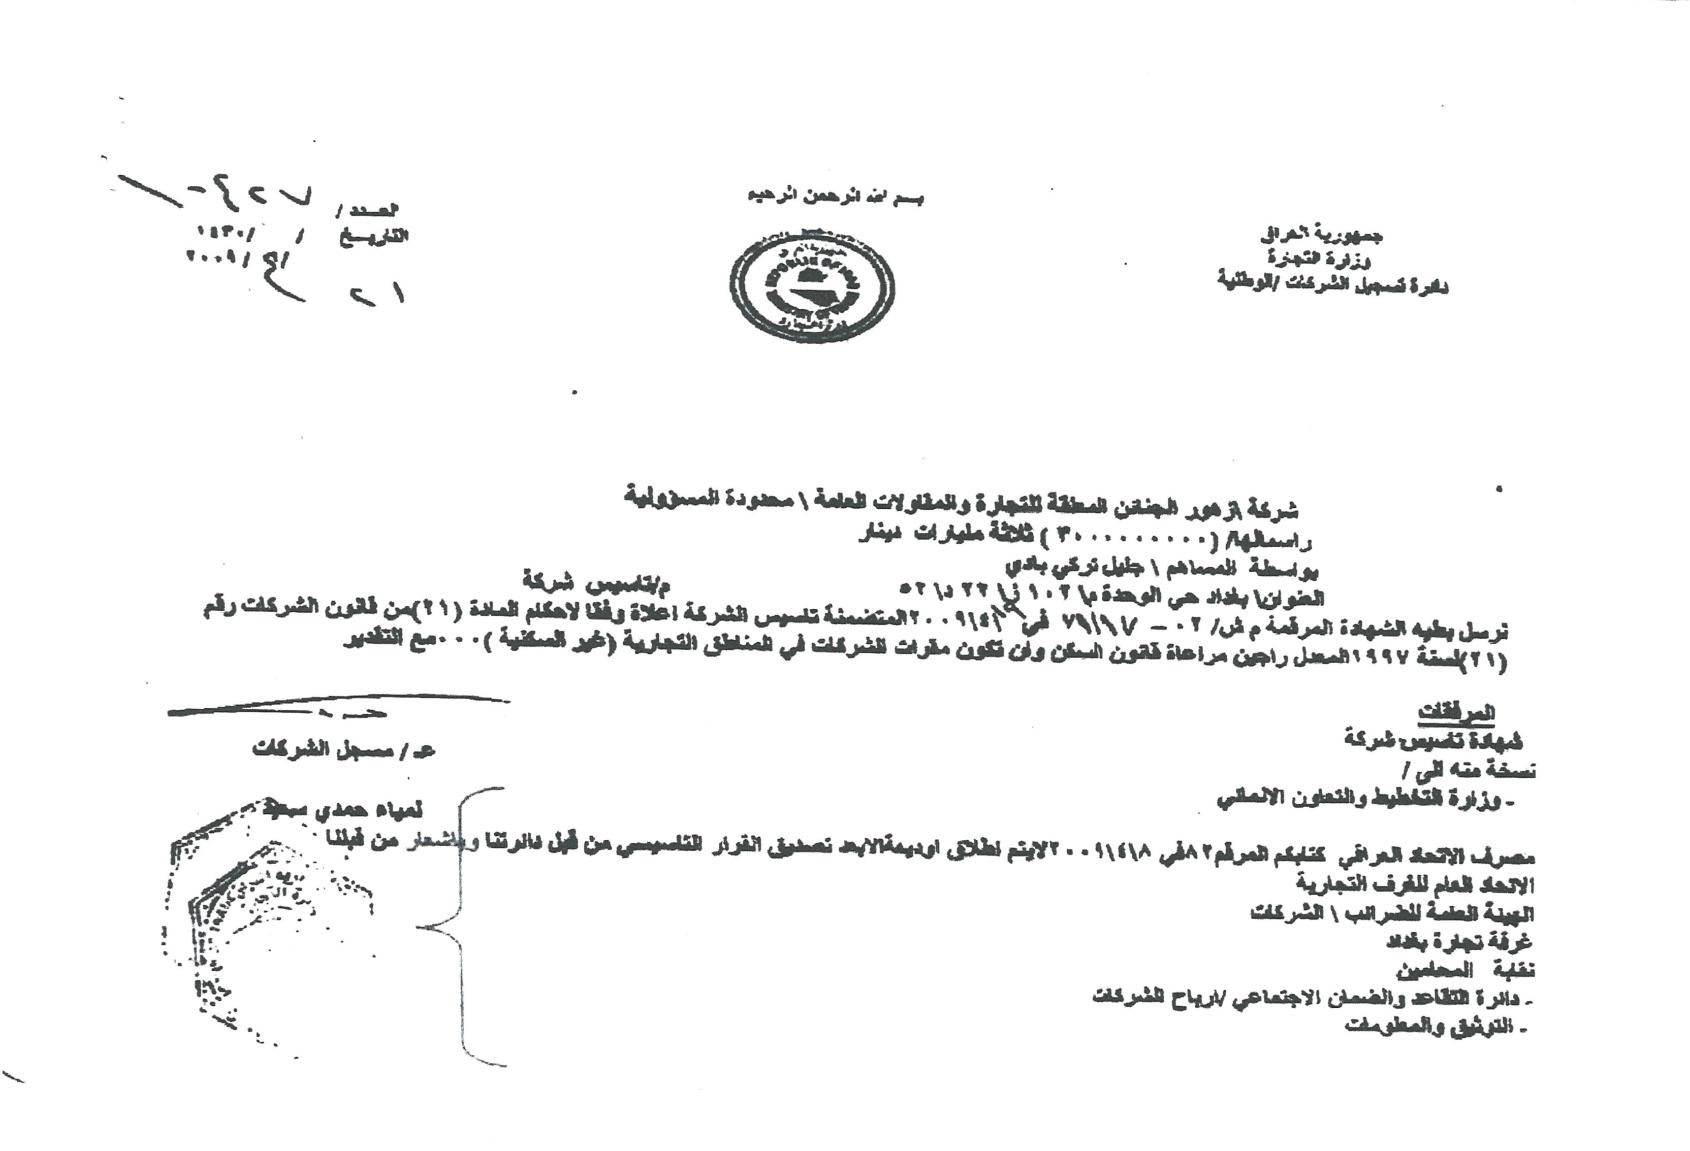 بسم الله الرحمن الرحيم
جمهورية العراق
وزارة التجارة
دائرة تسجيل الشركات /الوطنية
العدد /
التاريخ / /١٤٣٠
/ /٢٠٠٩
REPUBLIC OF IRAQ
شركة \زهور الجنائن المعلقة للتجارة والمقاولات العامة \ محدودة المسؤولية
راسمالها/ (٣٠٠٠٠٠٠٠٠٠) ثلاثة مليارات دينار
بواسطة المساهم \ جليل تركي بادي
العنوان\ بغداد حي الوحدة م\١٠٢ ز\٢٢ د\٥٢
م/تاسيس شركة
نرسل بطيه الشهادة المرقمة م ش/ ٠٢ – في ٢٠٠٩\٤\ المتضمنة تاسيس الشركة اعلاة وفقا لاحكام المادة (٢١)من قانون الشركات رقم
(٢١)لسنة ١٩٩٧المعدل راجين مراعاة قانون السكن وان تكون مقرات للشركات في المناطق التجارية (غير السكنية )٠٠٠مع التقدير
المرفقات
شهادة تاسيس شركة
نسخة منه الى /
- وزارة التخطيط والتعاون الانمائي
عـ / مسجل الشركات
لمياء حمدي سعيد
مصرف الاتحاد العراقي كتابكم المرقم٨٢في ٢٠٠٩\٤\٨لايتم اطلاق اوديعةالابعد تصديق القرار التاسيسي من قبل دائرتنا وباشعار من قبلنا
الاتحاد العام للغرف التجارية
الهيئة العامة للضرائب \ الشركات
غرفة تجارة بغداد
نقابة المحامين
- دائرة التقاعد والضمان الاجتماعي /ارباح الشركات
- التوثيق والمعلومات